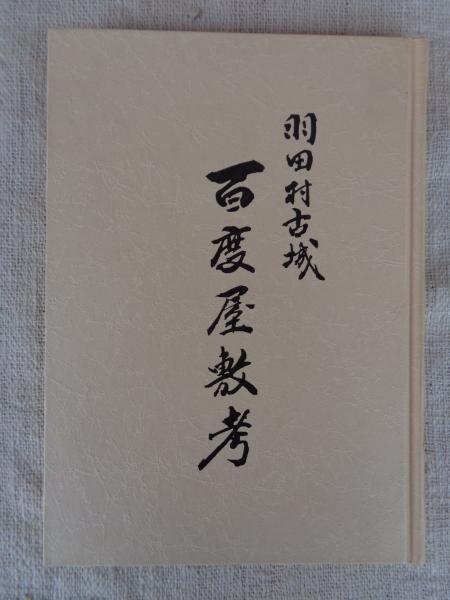 羽田村古城
百度屋敷考